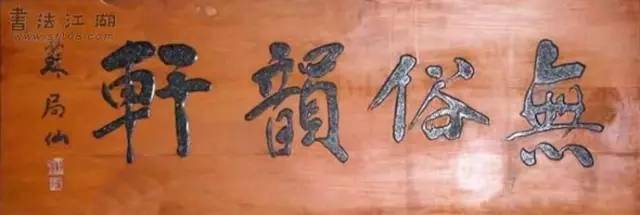 無俗韻軒
蘇局仙
書法江湖
www.sf108.com